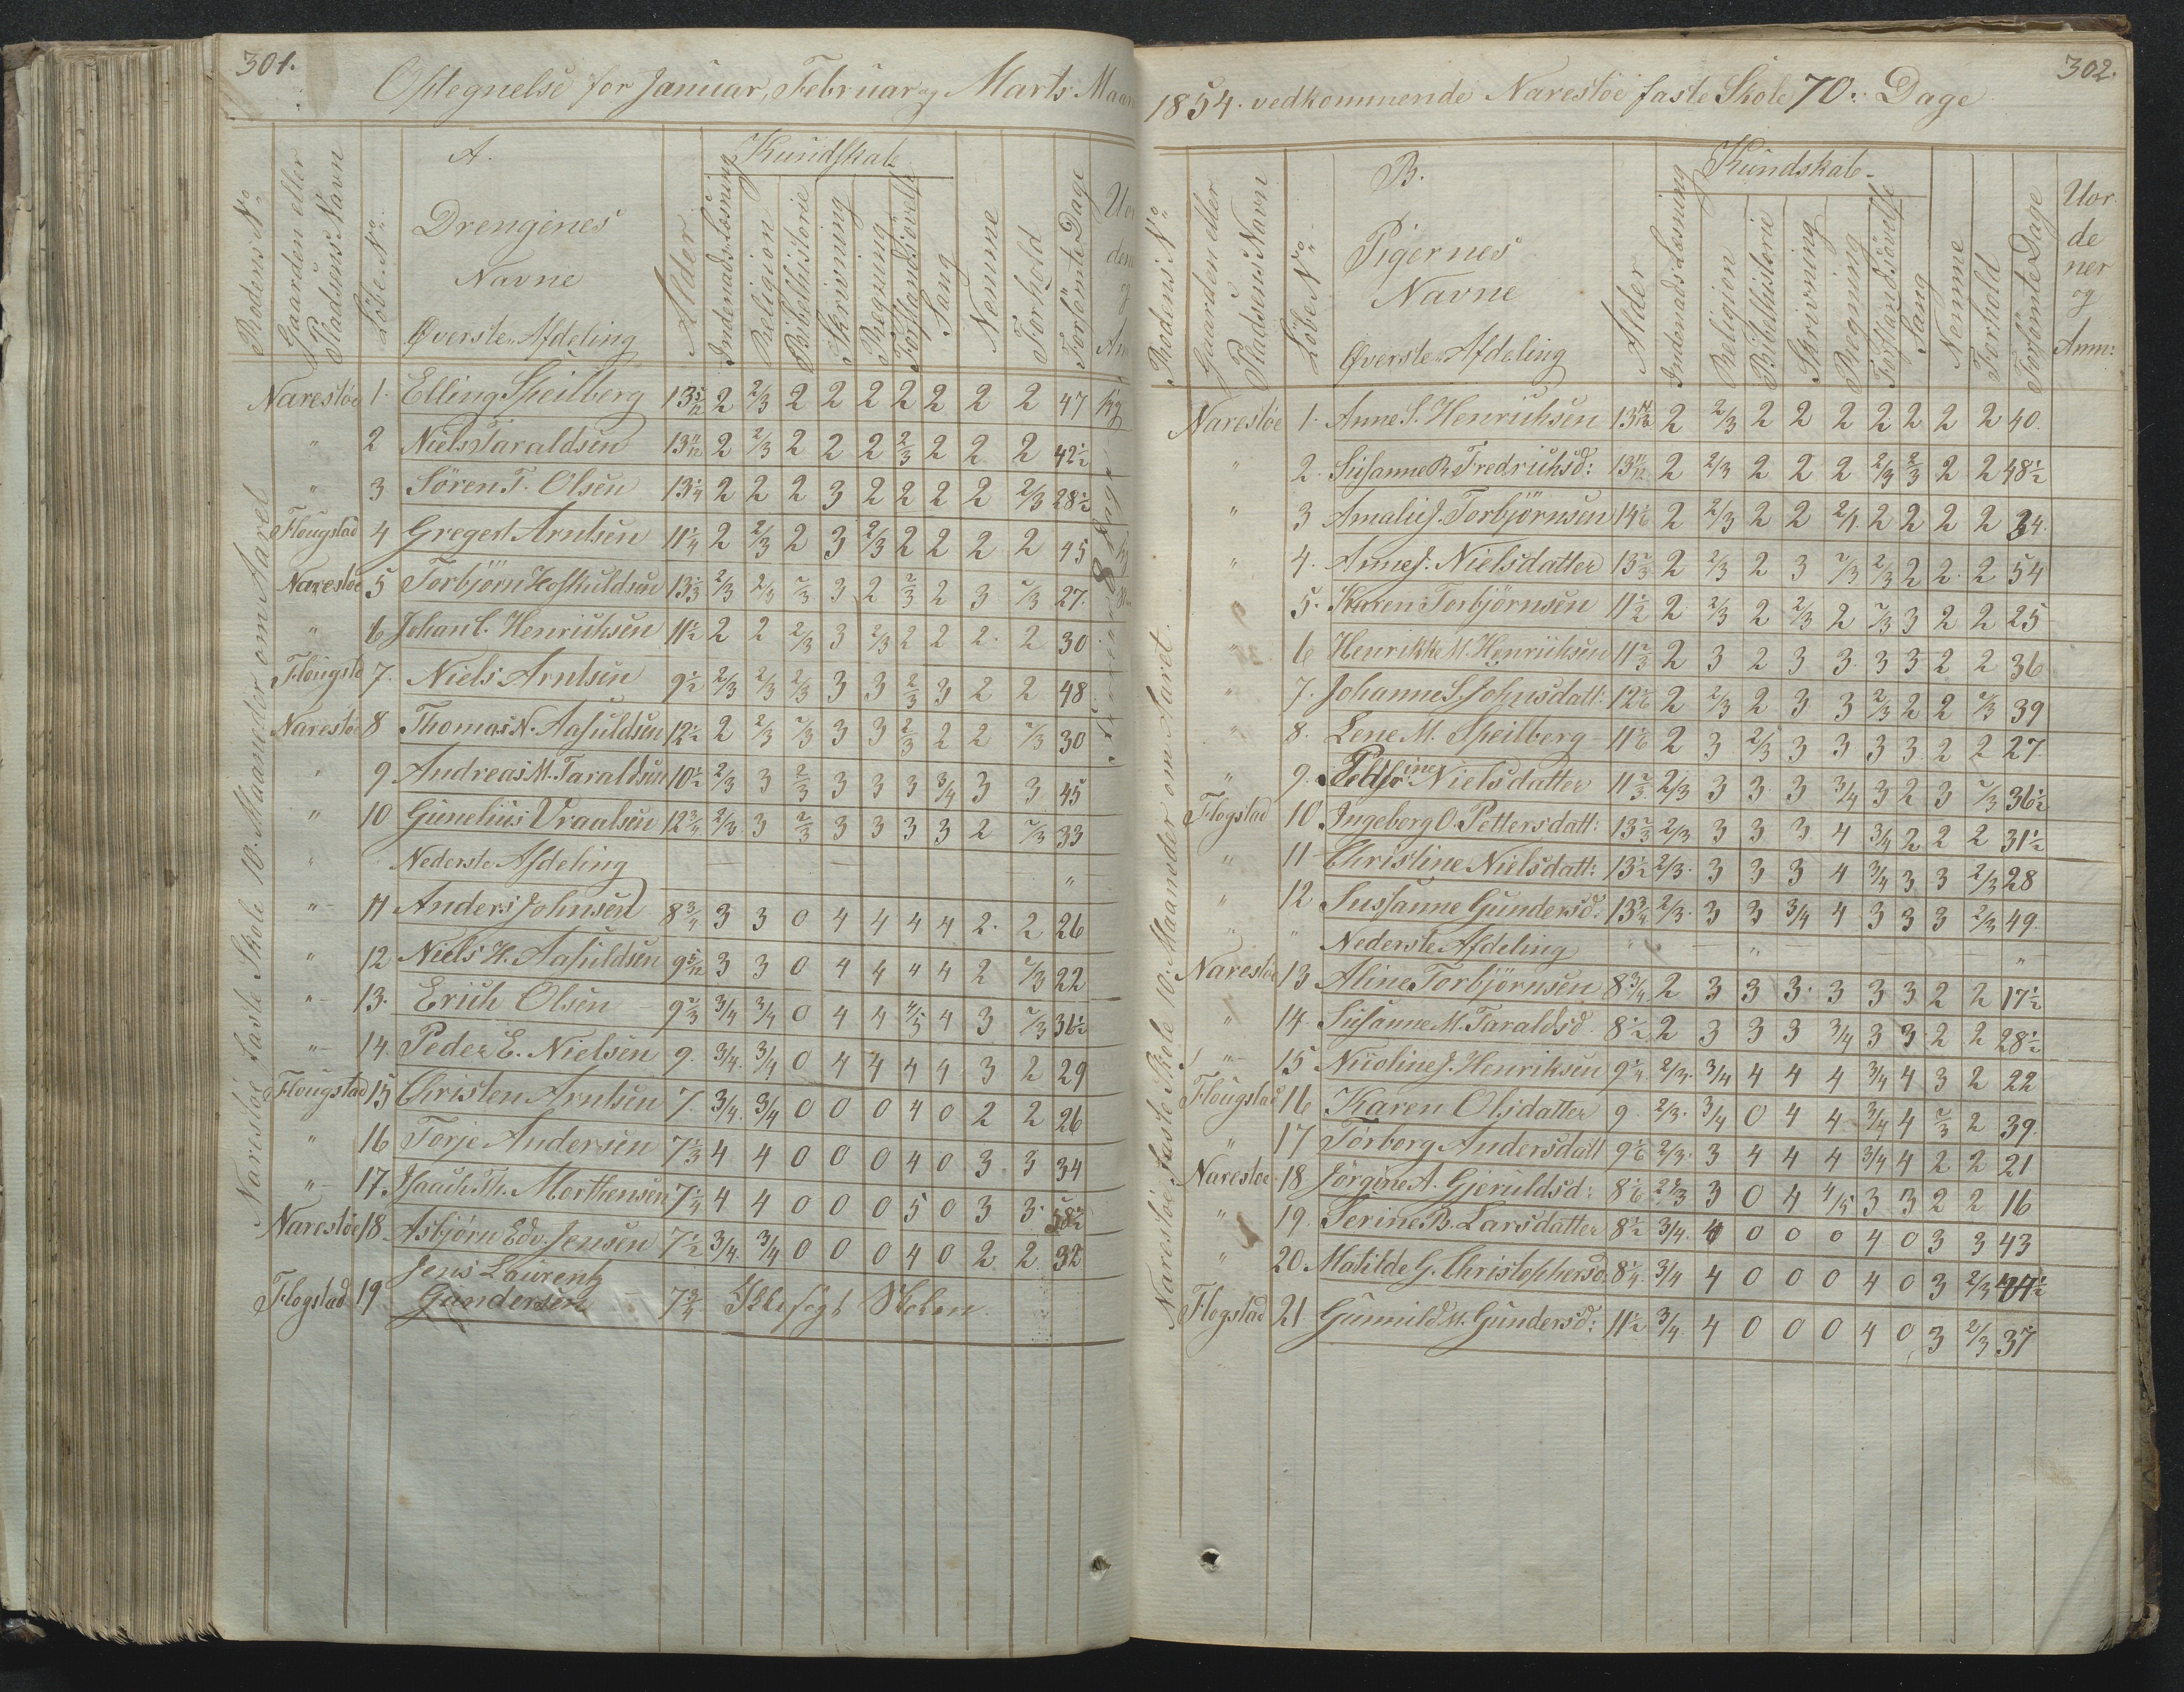 301.
Optegnelse for Januar, Februar og Marts Maan
Rodens No
Gaarden eller Pladsens Navn
Löbe No
A.
Drengenes
Navne
Øverste Afdeling
Alder
Kundskab
Indenads Læsning
Religion
Bibelhistorie
Skrivning
Regning
Forstandsövelse
Sang
Nemme
Forhold
Forsömte Dage
Naresløe faste Skole 10. Maaneder om Aaret
Naresløe 1. Elling Speilberg 13 5/12 2 2/3 2 2 2 2 2 2 2 47
" 2 Niels Taraldsen 13 11/12 2 2/3 2 2 2 2/3 2 2 2 42½
" 3 Sören T. Olsen 13¼ 2 2 2 3 2 2 2 2 2/3 28½
Flougstad 4 Gregert Arntsen 11¼ 2 2/3 2 3 2/3 2 2 2 2 45
Naresløe 5 Torbjörn Hoskuldsen 13⅓ 2/3 2/3 2/3 3 2 2/3 2 3 2/3 27.
" 6 Johan C. Henriksen 11½ 2 2 2/3 3 2/3 2 2 2. 2 30
Flougstd 7. Niels Arntsen 9½ 2/3 2/3 2/3 3 3 2/3 3 2 2 48
Naresløe 8 Thomas N. Aasuldsen 12½ 2 2/3 2/3 3 3 2/3 2 2 2/3 30
" 9 Andreas M. Taraldsen 10½ 2/3 3 2/3 3 3 3 3/4 3 3 45
" 10 Gunelius Vraalsen 12¾ 2/3 3 2/3 3 3 3 3 2 2/3 33
" Nederste Afdeling "
" 11 Anders Johnsen 8¾ 3 3 0 4 4 4 4 2. 2 26
" 12 Niels H. Aasuldsen 9 5/12 3 3 0 4 4 4 4 2 2/3 22
" 13. Erich Olsen 9⅔ 3/4 3/4 0 4 4 4/5 4 3 2/3 36½
" 14. Peder E. Nielsen 9. 3/4. 3/4 0 4 4 4 4 3 2 29
Flougstad 15 Christen Arntsen 7. 3/4. 3/4 0 0 0 4 0 2 2 26
" 16 Torje Andersen 7⅓ 4 4 0 0 0 4 0 3 3 34
" 17. Isach Th. Morthensen 7¼ 4 4 0 0 0 5 0 3 3. 58½
Naresløe 18. Asbjørn Edv. Jensen 7½ 3/4. 3/4 0 0 0 4 0 2 2 32
Flogstad 19 Jens Laurentz
Gundersen 7¾ Ikke sögt Skolen.
302.
1854. vedkommende Naresløe faste Skole 70. Dage
Rodens No
Gaarden eller Pladsens Navn
Löbe No
B.
Pigernes
Navne
Øverste Afdeling
Alder
Kundskab
Indenads Læsning
Religion
Bibelhistorie
Skrivning
Regning
Forstandsövelse
Sang
Nemme
Forhold
Forsömte Dage
Uor
de
ner
og
Anm:
Naresløe faste Skole 10. Maaneder om Aaret.
Naresløe 1. Anne S. Henriksen 2 2/3 2 2 2 2 2 2 2 40.
" 2. Susanne B. Fredriksd: 13 11/12 2 2/3 2 2 2 2/3 2/3 2 2 48½
" 3 Amalie J. Torbjörnsen 14⅙ 2 2/3 2 2 2/1. 2 2 2 2 24.
" 4. Anne J. Nielsdatter 13⅔ 2 2/3 2 3 2/3 2/3 2 2. 2 54
" 5. Karen Torbjörnsen 11½ 2 2/3 2 2/3 2 2/3 3 2 2 25
" 6 Henrikke M. Henriksen 11⅔ 2 3 2 3 3. 3 3 2 2 36
" 7. Johanne S. Johnsdatt: 12⅙ 2 2/3 2 3 3 2/3 2 2 2/3 39
" 8. Lene M. Speilberg 11⅙ 2 3 2/3 3 3 3 3 2 2 27.
" 9. Nielsdatter 11⅔ 2/3 3 3 3 3/4 3 2 3 2/3 36½
Flogstad 10. Ingeborg O. Pettersdatt: 13⅔ 2/3 3 3 3 4 3/4 2 2 2 31½
" 11 Christine Nielsdatt: 13½ 2/3. 3 3 3 4 3/4 3 3 2/3 28
" 12 Sussanne Gundersd: 13¾ 2/3. 3 3 3/4 4 3 3 3 2/3 49.
" " Nederste Afdeling " " "
Naresløe 13 Aline Torbjörnsen 8¾ 2 3 3 3. 3 3 3 2 2 17½
" 14. Susanne M. Taraldsd. 8½ 2 3 3 3 3/4 3 3 2 2 28½
" 15 Nicoline J. Henriksen 9¼ 2/3. 3/4 4 4 4 3/4 4 3 2 22
Flougstad 16 Karen Olsdatter 9. 2/3. 3/4 0 4 4 3/4 4 2/3 2 39.
" 17 Törborg Andersdatt 9⅙ 2/3. 3 4 4 4 3/4 4 2 2 21
Naresloe 18 Jörgine A. Gjeruldsd: 8⅙ 2/3 3 0 4 4/5 3 3 2 2 16
" 19. Serine B. Larsdatter 8½ 3/4. 4 0 0 0 4 0 3 3 43
" 20. Matilde G. Christophersd. 8¼ 3/4 4 0 0 0 4 0 3 2/3 44½
Flogstad 21. Gunnild M. Gundersd: 11½ 3/4. 4 0 0 0 4 0 3 2/3 37